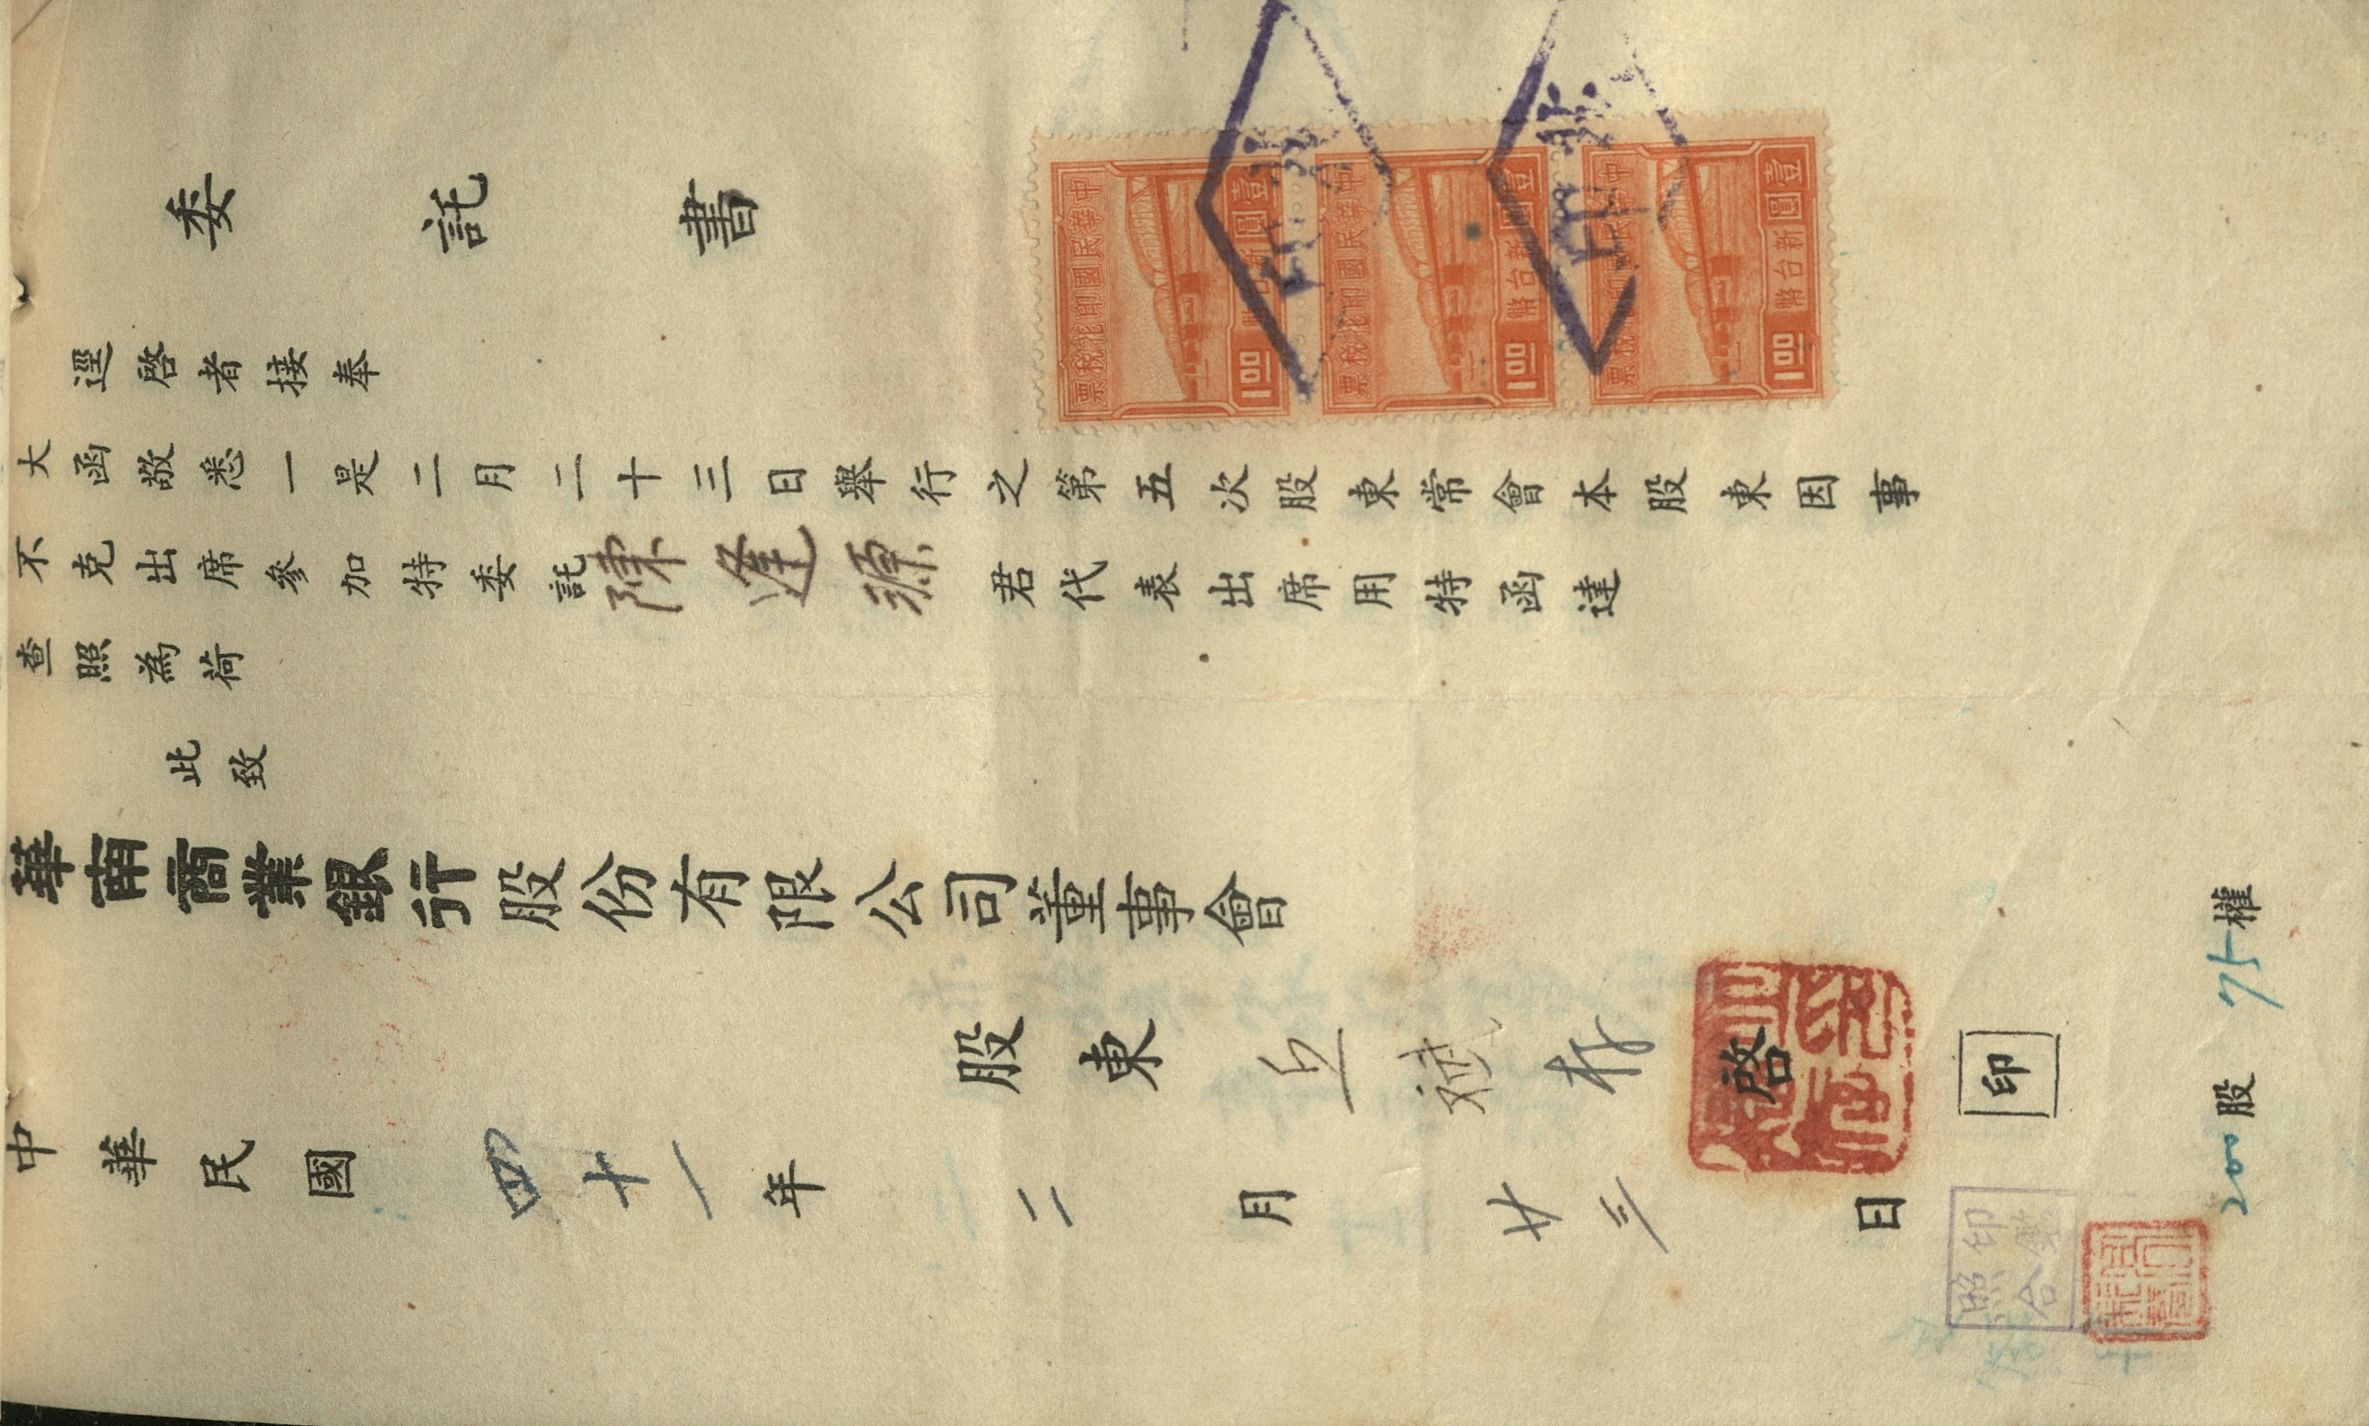 委託書
逕啓者接奉
大函敬悉一是二月二十三日舉行之第五次股東常會本股東因事
不克出席參加特委託陳逢源君代表出席用特函達
查照為荷
此致
華南商業銀行股份有限公司董事會
股東丘斌存啓
印
中華民國四十一年二月廿三日
200股 75權
中華民國印花稅票
壹圓新台幣
1.00
中華民國印花稅票
壹圓新台幣
1.00
中華民國印花稅票
壹圓新台幣
1.00
印鑑
照合